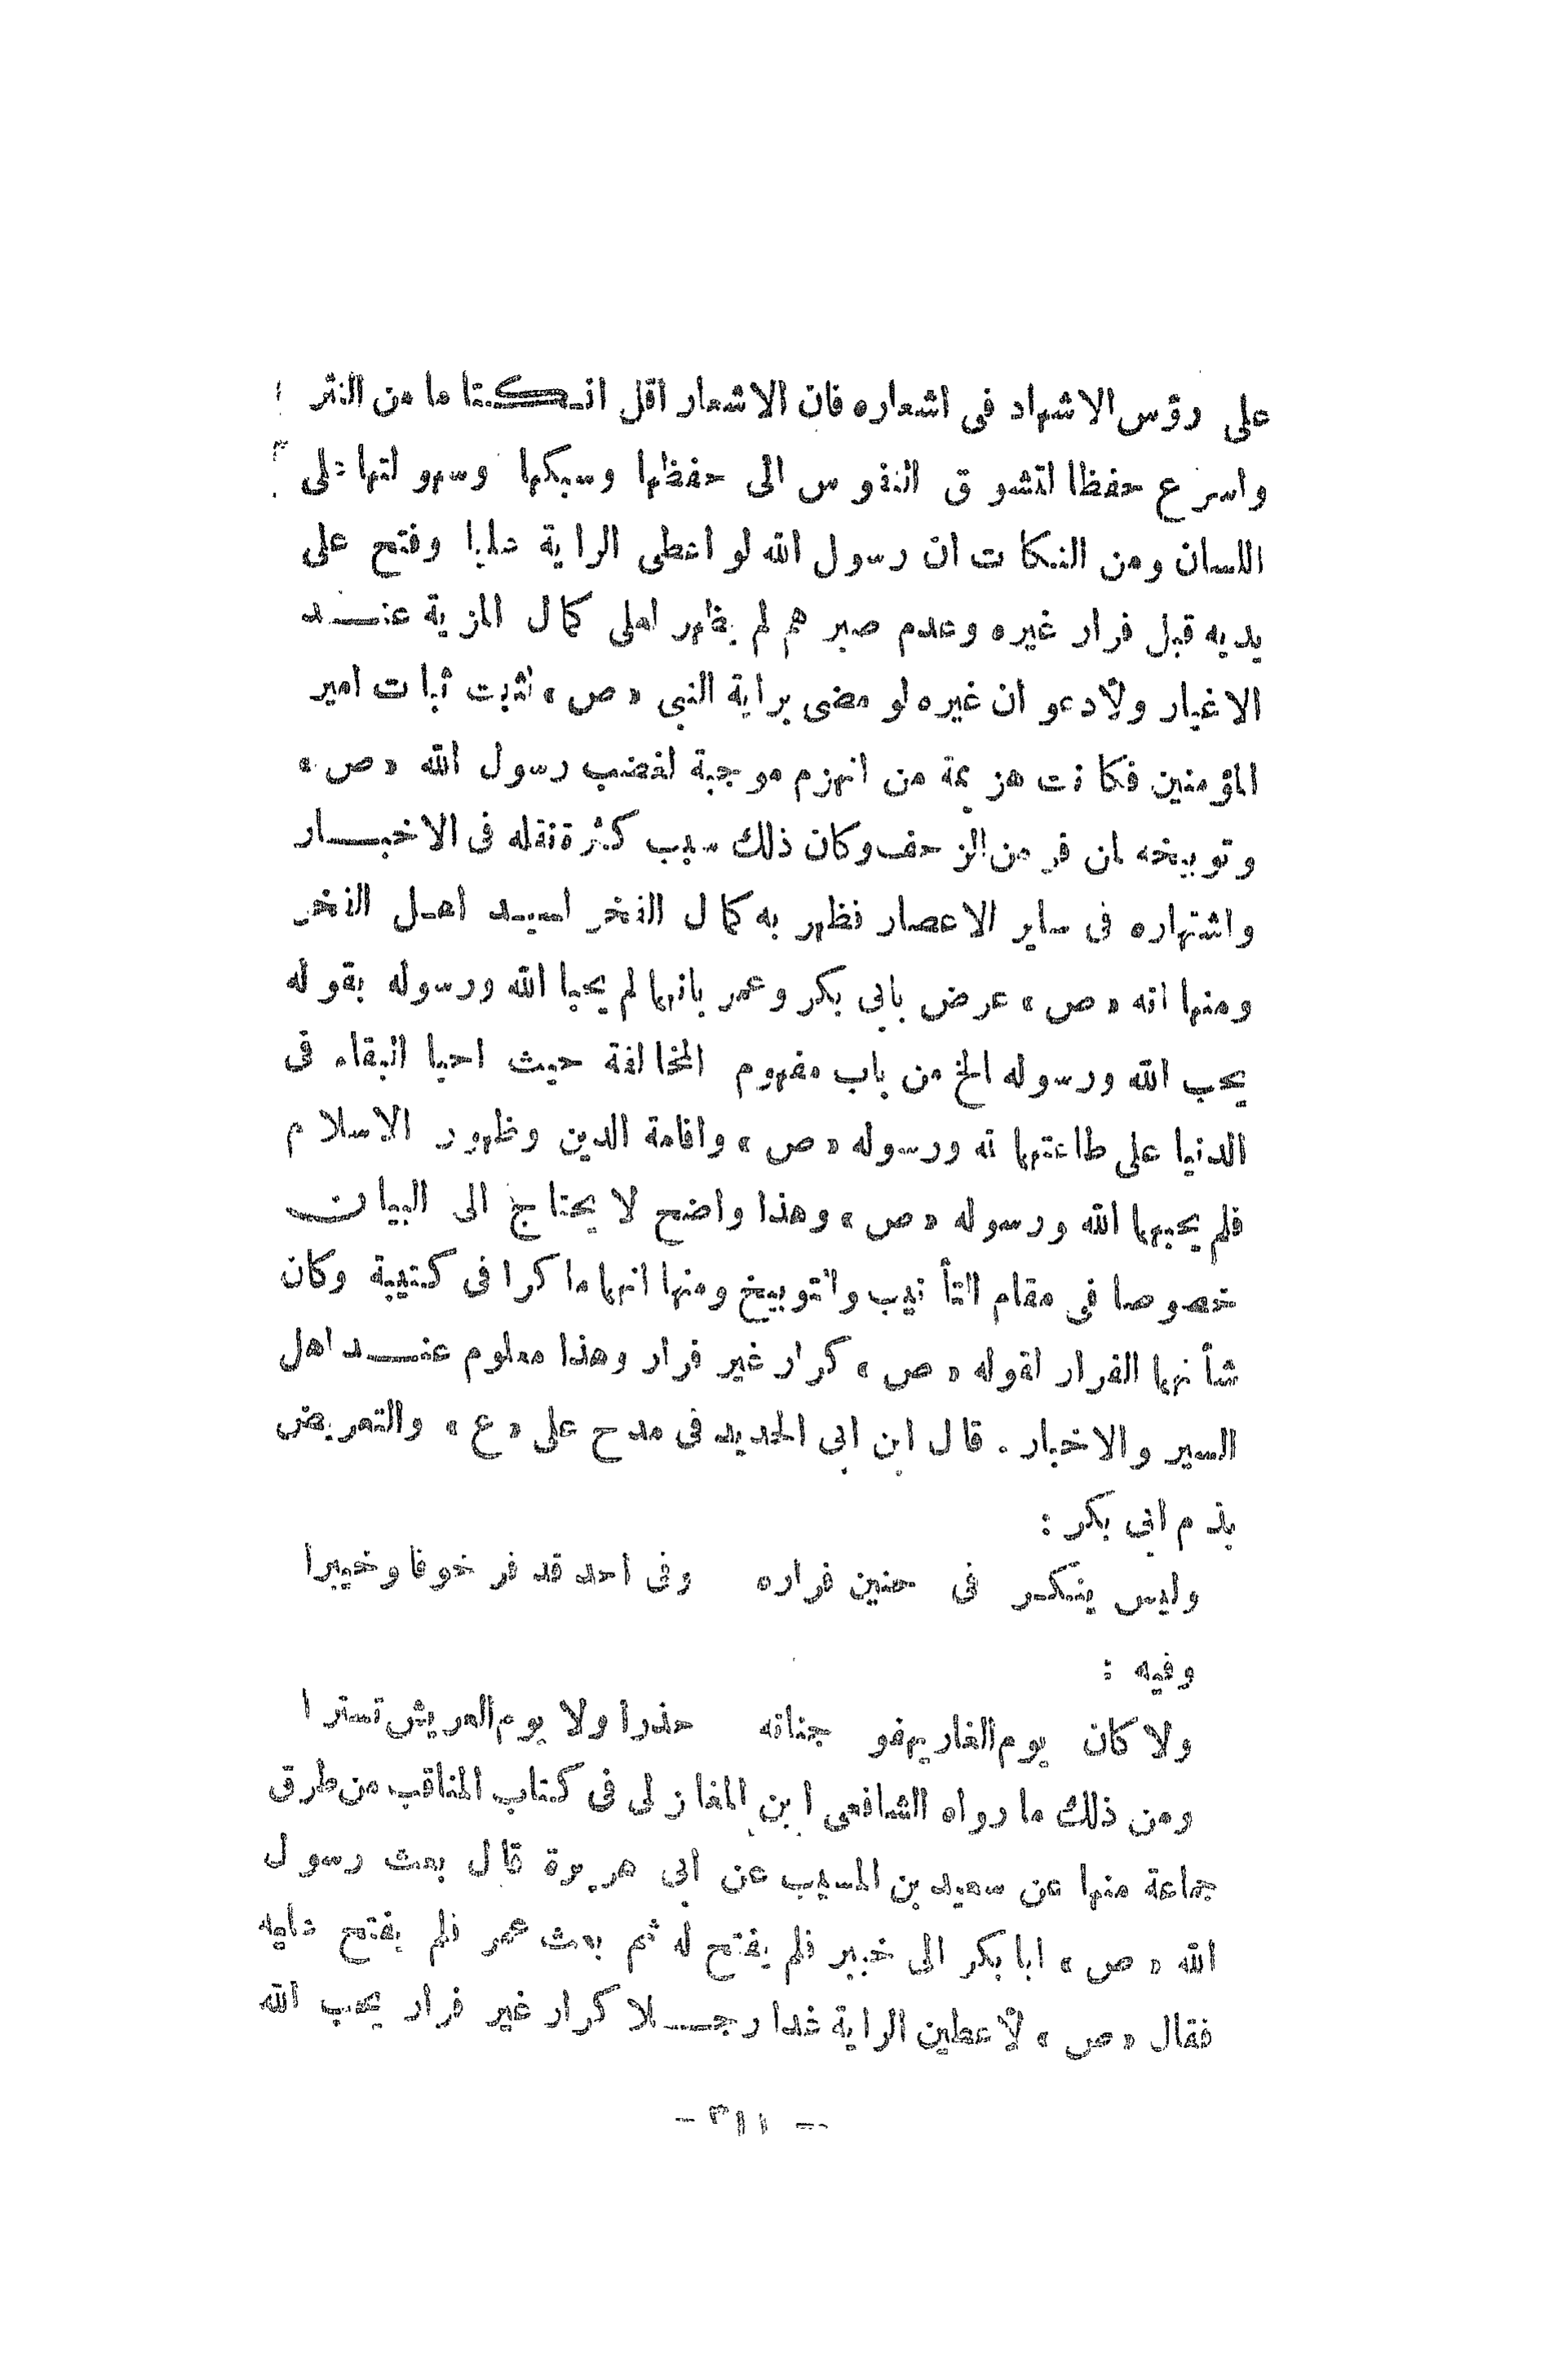 على رؤس الاشهاد فى اشعاره فان الاشعار اقل انـكـتا ما من النثر
واسرع حفظا لتشوق النفوس الى حفظها وسبكها وسهولتها على
اللسان ومن النكات ان رسول الله لو اعطى الراية عليا وفتح على
يديه قبل فرار غيره وعدم صبرهم لم يظهر لعلى كمال المزية عنـــد
الاغيار ولأدعو ان غيره لو مضى براية النبي «ص» لثبت ثبات امير
المؤمنين فكانت هزيمة من انهزم موجبة لغضب رسول الله «ص»
وتوبيخه لمن فر من الزحف وكان ذلك سبب كثرة نقله فى الاخبـــار
واشتهاره فى ساير الاعصار فظهر به كمال الفخر لسيـد اهـل الفخر
ومنها انه «ص» عرض بابى بكر وعمر بانهما لم يحبا الله ورسوله بقوله
يحب الله ورسوله الخ من باب مفهوم المخالفة حيث احبا البقاء فى
الدنيا على طاعتهما لله ورسوله «ص» واقامة الدين وظهور الاسلام
فلم يحبهما الله ورسوله «ص» وهذا واضح لا يحتاج الى البيان
خصوصا فى مقام التأنيب والتوبيخ ومنها انهما ما كرا فى كتيبة وكان
شأنهما الفرار لقوله «ص» كرار غير فرار وهذا معلوم عنـــد اهل
السير والاخبار . قال ابن ابى الحديد فى مدح على «ع» والتعريض
بذم ابى بكر :
وليس ينكـر فى حنين فراره وفى احد قد فر خوفا وخيبرا
وفيه :
ولا كان يوم الغار يهفو جنانه حذرا ولا يوم العريش تسترا
ومن ذلك ما رواه الشافعى ابن المغازلى فى كتاب المناقب من طرق
جماعة منها عن سعيد بن المسيب عن ابى هريرة قال بعث رسول
الله «ص» ابا بكر الى خيبر فلم يفتح له ثم بعث عمر فلم يفتح عليه
فقال «ص» لأعطين الراية غدا رجـــلا كرار غير فرار يحب الله
- ٣١١ -